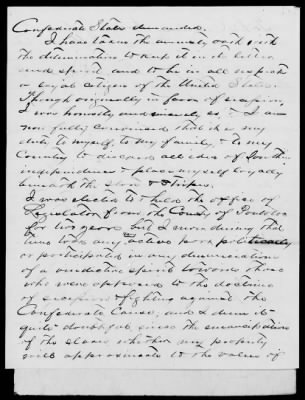 Confederate States demanded.
I have taken the amnesty oath with
the determination to keep it in its letter
and spirit, and to be in all respects
a loyal citizen of the United States.
Though originally in favor of secession,
I was honestly and sincerely so, & I am
now fully convinced that it is my
duty to myself, to my family, & to my
Country to discard all idea of Southern
independence & place myself loyally
beneath the Stars & Stripes.
I was elected to & held the office of
Legislator from the County of
for two years but I never during that
time took any active part politically
or participated in any denunciation
of a vindictive spirit towards those
who were opposed to the doctrine
of secession or fighting against the
Confederate Cause; and I deem it
quite doubtful since the emancipation
of the slaves whether my property
will approximate to the value of